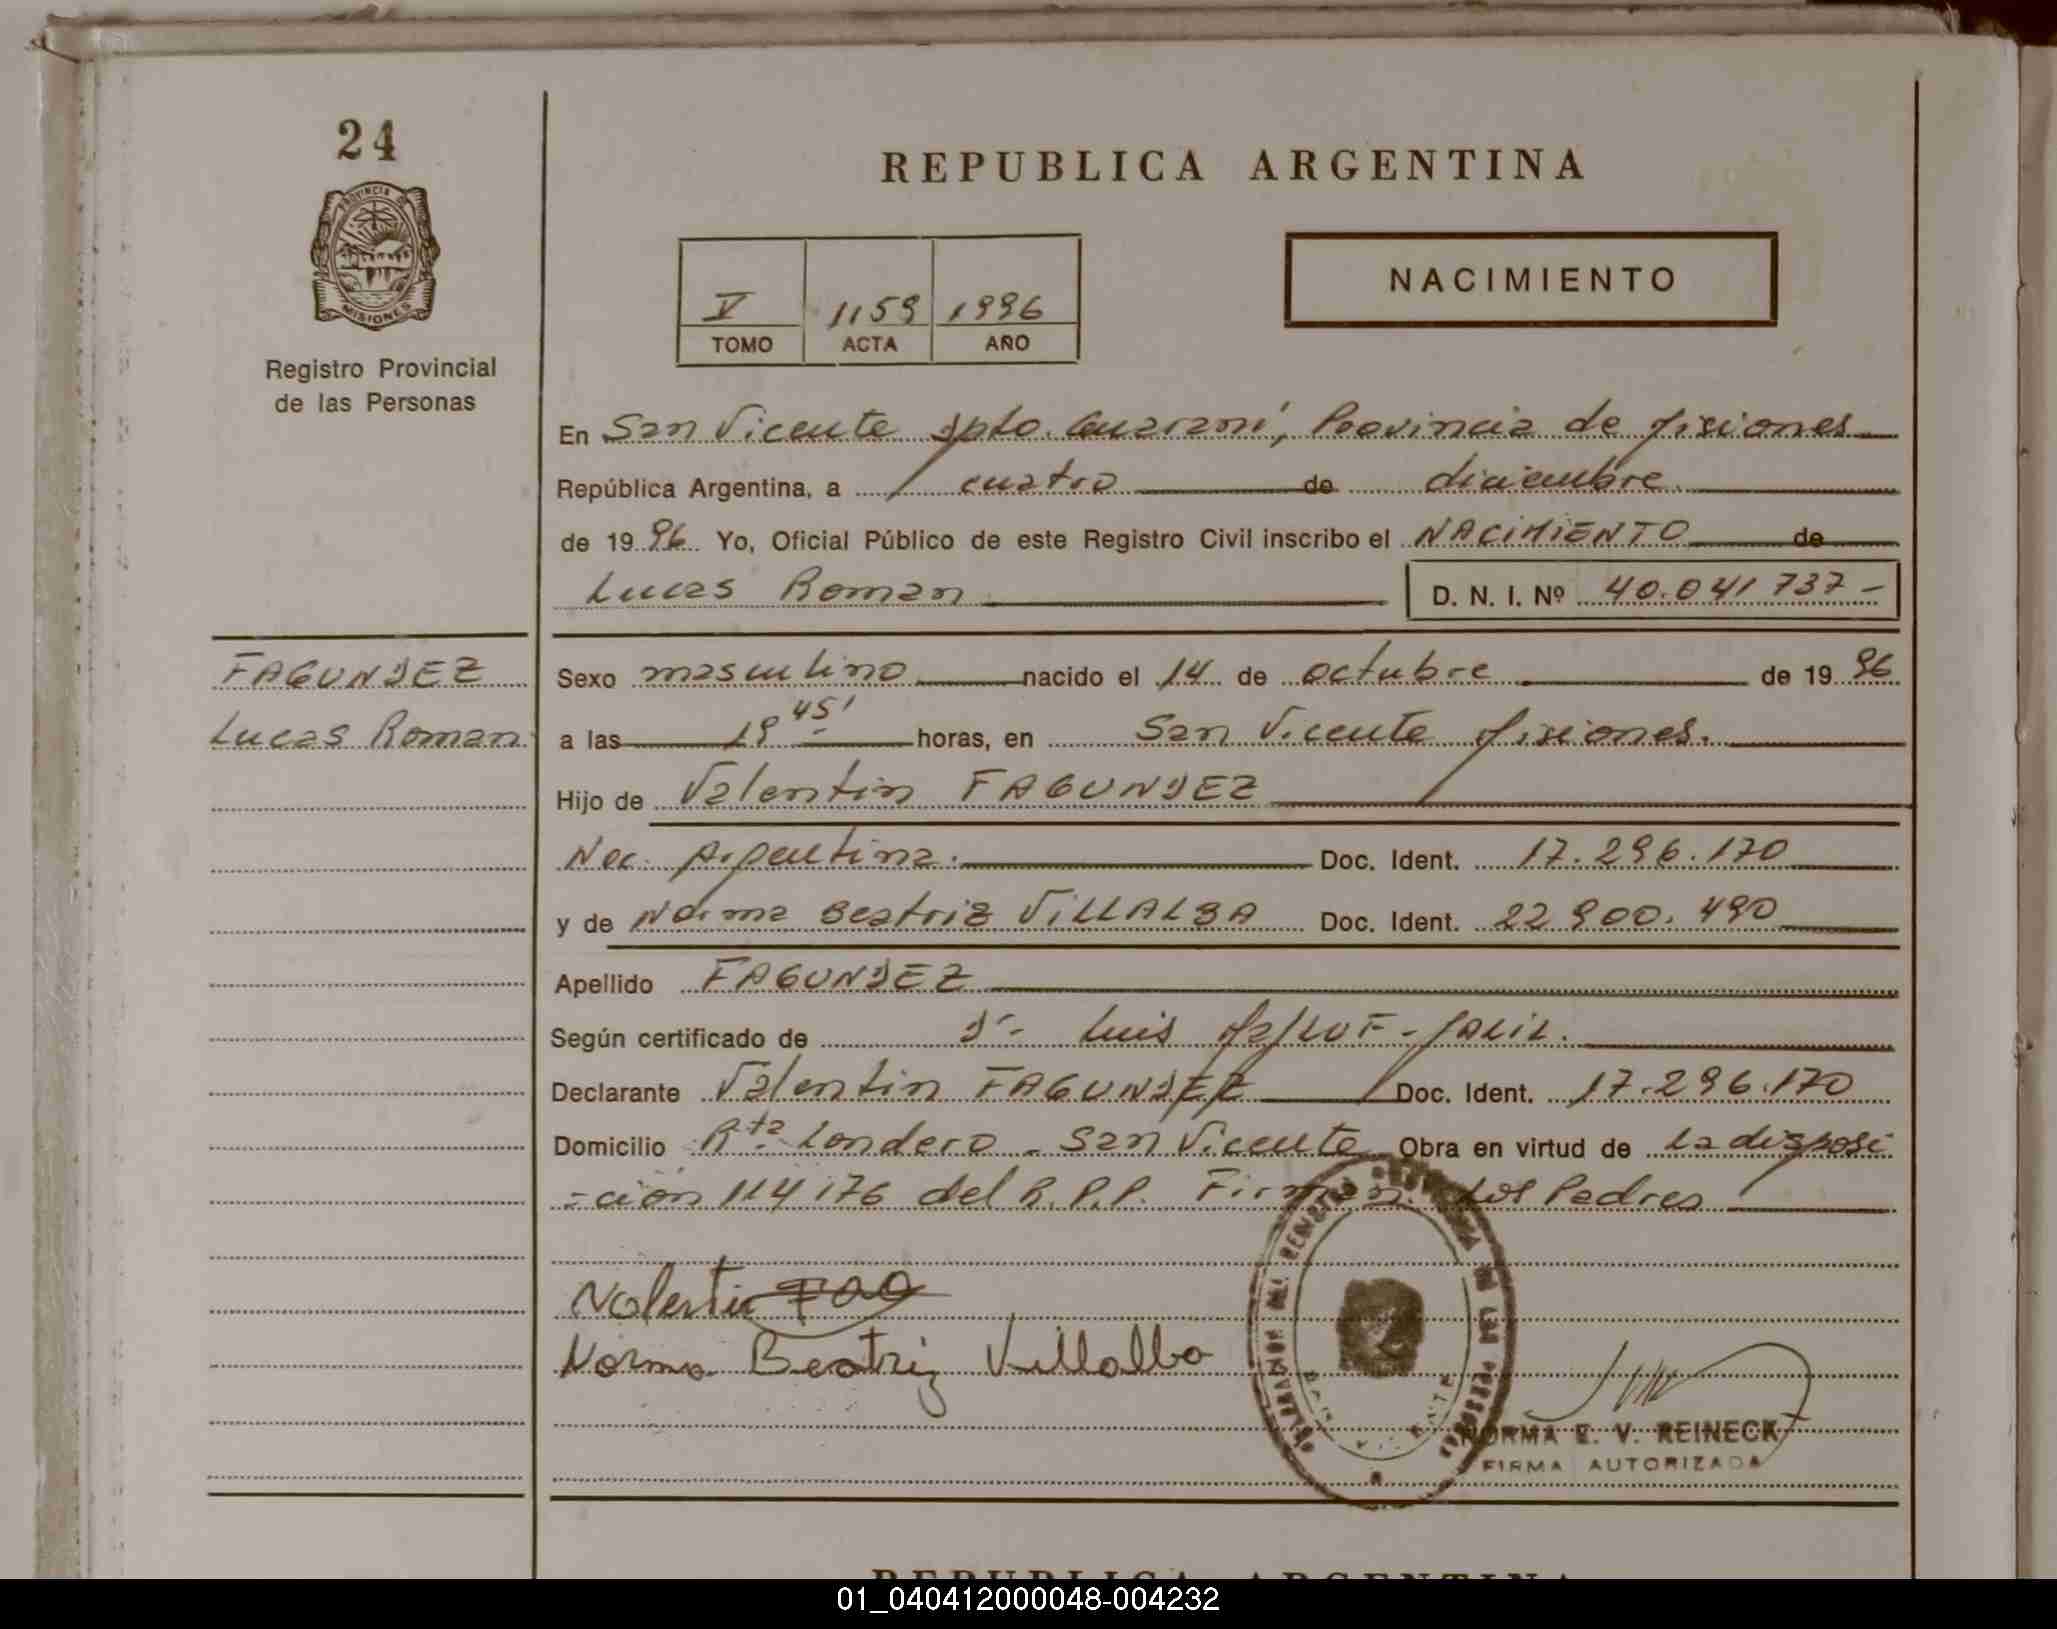 24
REPUBLICA ARGENTINA
PROVINCIA DE
MISIONES
Registro Provincial
de las Personas
V 1159 1996
TOMO ACTA AÑO
NACIMIENTO
En San Vicente Dpto. Guaraní, Provincia de Misiones
República Argentina, a cuatro de diciembre
de 1996 Yo, Oficial Público de este Registro Civil inscribo el NACIMIENTO de
Lucas Roman D. N. I. Nº 40.041737-
FAGUNDEZ
Lucas Roman
Sexo masculino nacido el 14 de octubre de 1996
a las 19 45' horas, en San Vicente Misiones.
Hijo de Valentin FAGUNDEZ
Nac. Argentina. Doc. Ident. 17.296.170
y de Norma Beatriz VILLALBA Doc. Ident. 22900.490
Apellido FAGUNDEZ
Según certificado de Dr. Luis
Declarante Valentin FAGUNDEZ Doc. Ident. 17.296.170
Domicilio Rta Londero - San Vicente Obra en virtud de la disposi
-ción 114/76 del R.P.P. Firman los Padres
Valentin
Norma Beatriz Villalba
NORMA E. V. REINECK
FIRMA AUTORIZADA
REPUBLICA ARGENTINA
01_040412000048-004232